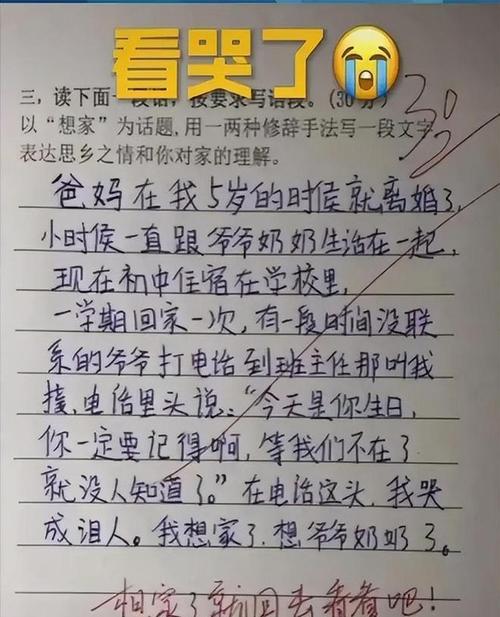 看哭了
三，读下面一段话，按要求写语段。(30分)
以“想家”为话题,用一两种修辞手法写一段文字
表达思乡之情和你对家的理解。
30
爸妈在我5岁的时候就离婚了,
小时侯一直跟爷爷奶奶生活在一起,
现在初中住宿在学校里,
一学期回家一次,有一段时间没联
系的爷爷打电话到班主任那叫我
接,电话里头说:“今天是你生日,
你一定要记得啊,等我们不在了
就没人知道了。”在电话这头,我哭
成泪人。我想家了,想爷爷奶奶了。
想家了就回去看看吧!